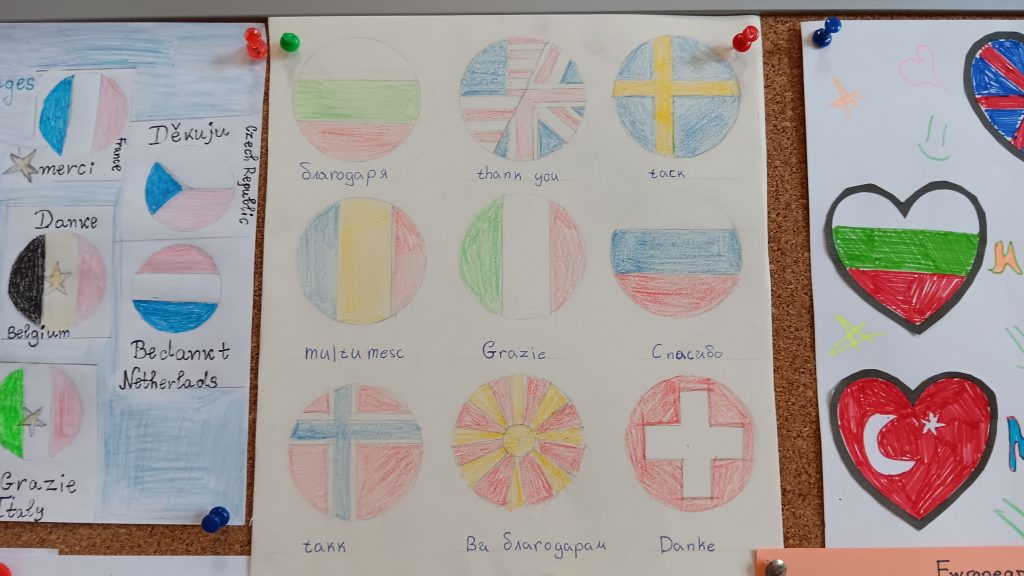 ges
merci
France
Děkuju
Czech Republic
Danke
Belgium
Bedankt
Netherlads
Grazie
Italy
благодаря
thank you
tack
multumesc
Grazie
Спасибо
takk
Ви благодарам
Danke